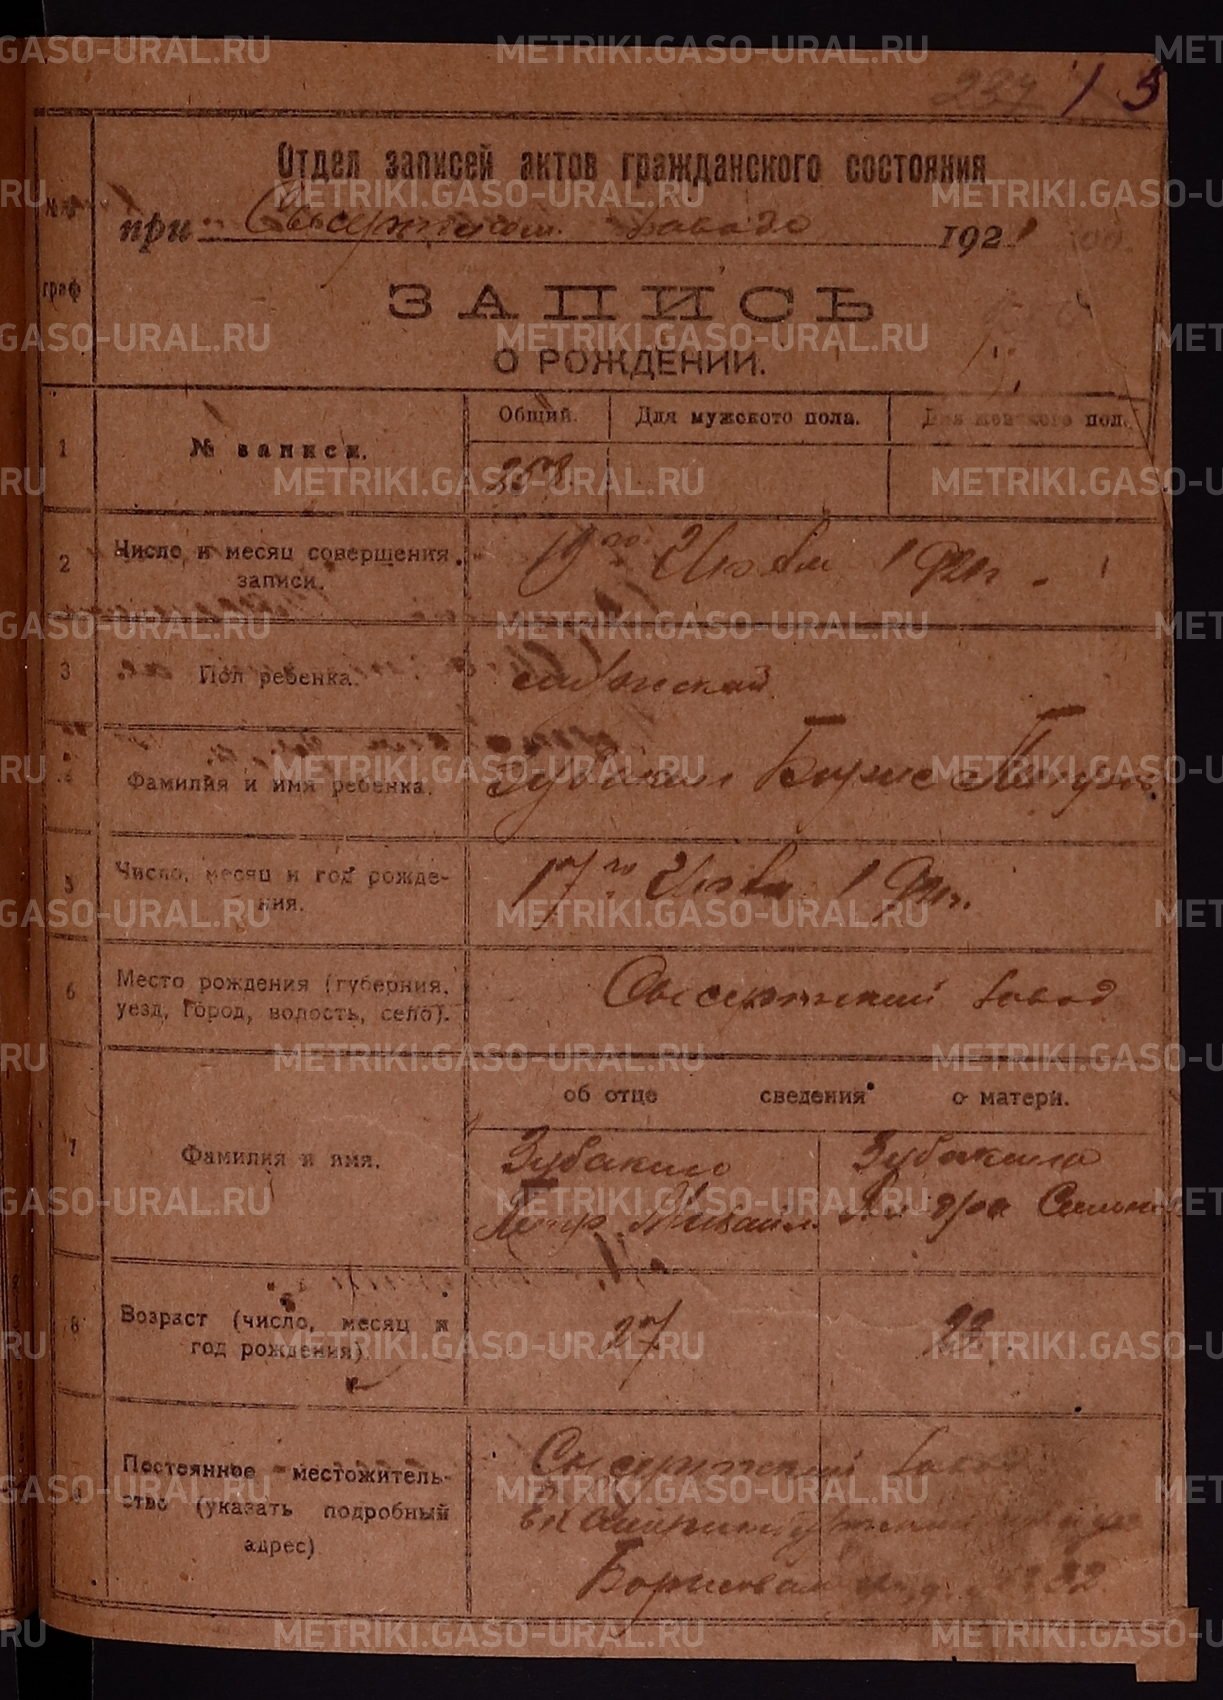 237 13
Отдел записей актов гражданского состояния
№№ граф
при Сысертском Заводе 1921 год.
ЗАПИСЬ
О РОЖДЕНИИ.
1 № записи.
Общий. Для мужского пола. Для женского пол.
258
2 Число и месяц совершения записи.
19го 1921г.
3 Пол ребенка.
мужской
Фамилия и имя ребенка.
Зубакин Борис Петров.
5 Число, месяц и год рождения.
17го 1921г.
6 Место рождения (губерния, уезд, город, волость, село).
Сысертский завод
об отце сведения о матери.
7 Фамилия и имя.
Зубакин Зубакина
Петр Михайл.
8 Возраст (число, месяц и год рождения)
27 22.
9 Постоянное местожительство (указать подробный адрес)
Сысертский завод
Екатеринбургский уезда
32
METRIKI.GASO-URAL.RU